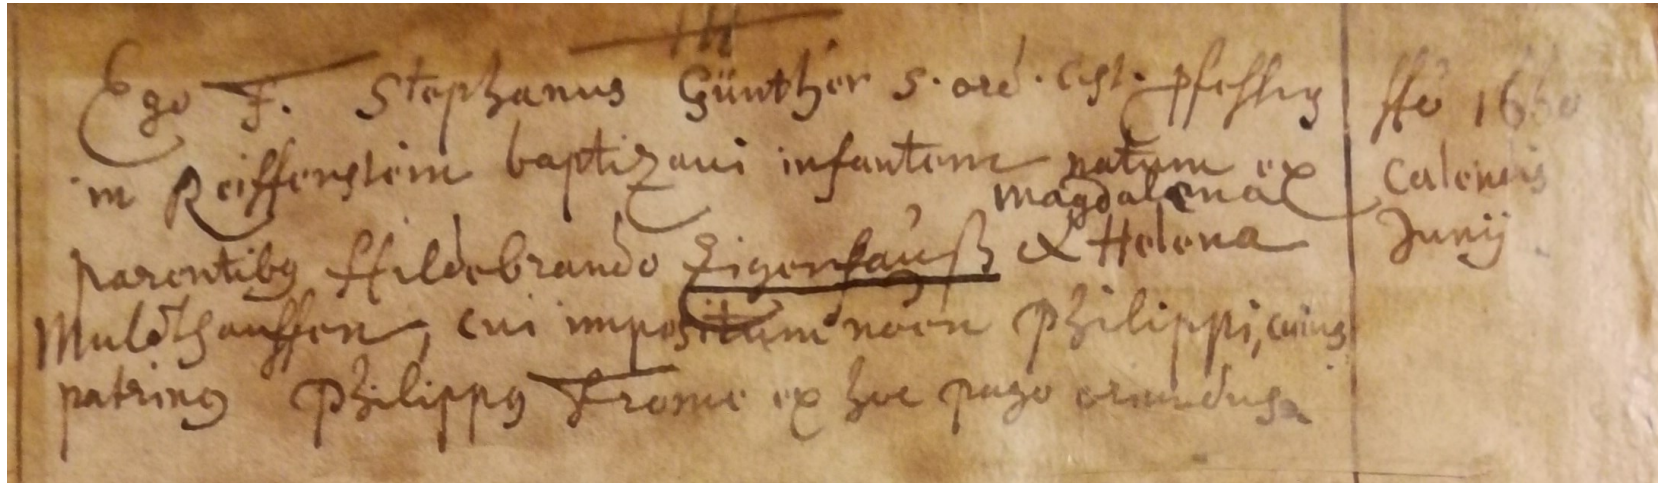 Ego F. Stephanus Günther S. ord. Cist. pfessus
in Reiffenstein baptizavi infantem natum ex
Magdalena
parentibus Hildebrando Zigenhauß & Helena
Muldthaussen, cui impositum noen Philippi, cuius
patrinus Philippus Frome ex hoc pago oriundus
1660
Calendis
Junij